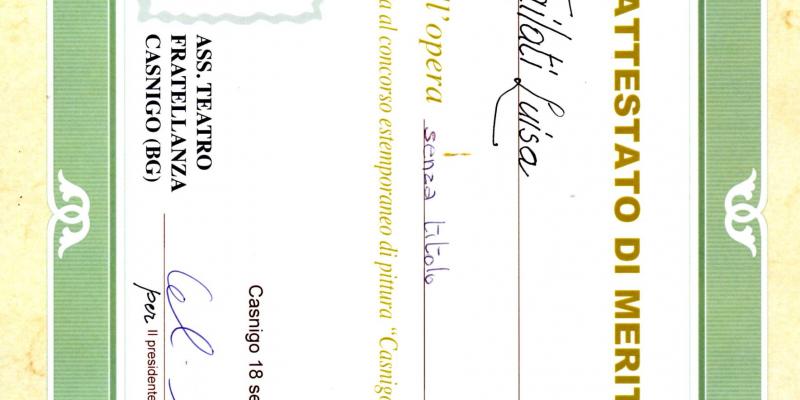 ATTESTATO DI MERIT
ilati Luisa
ll'opera senza titolo
a al concorso estemporaneo di pittura "Casnigo
Casnigo 18 se
ASS. TEATRO
FRATELLANZA
CASNIGO (BG)
per Il presidente